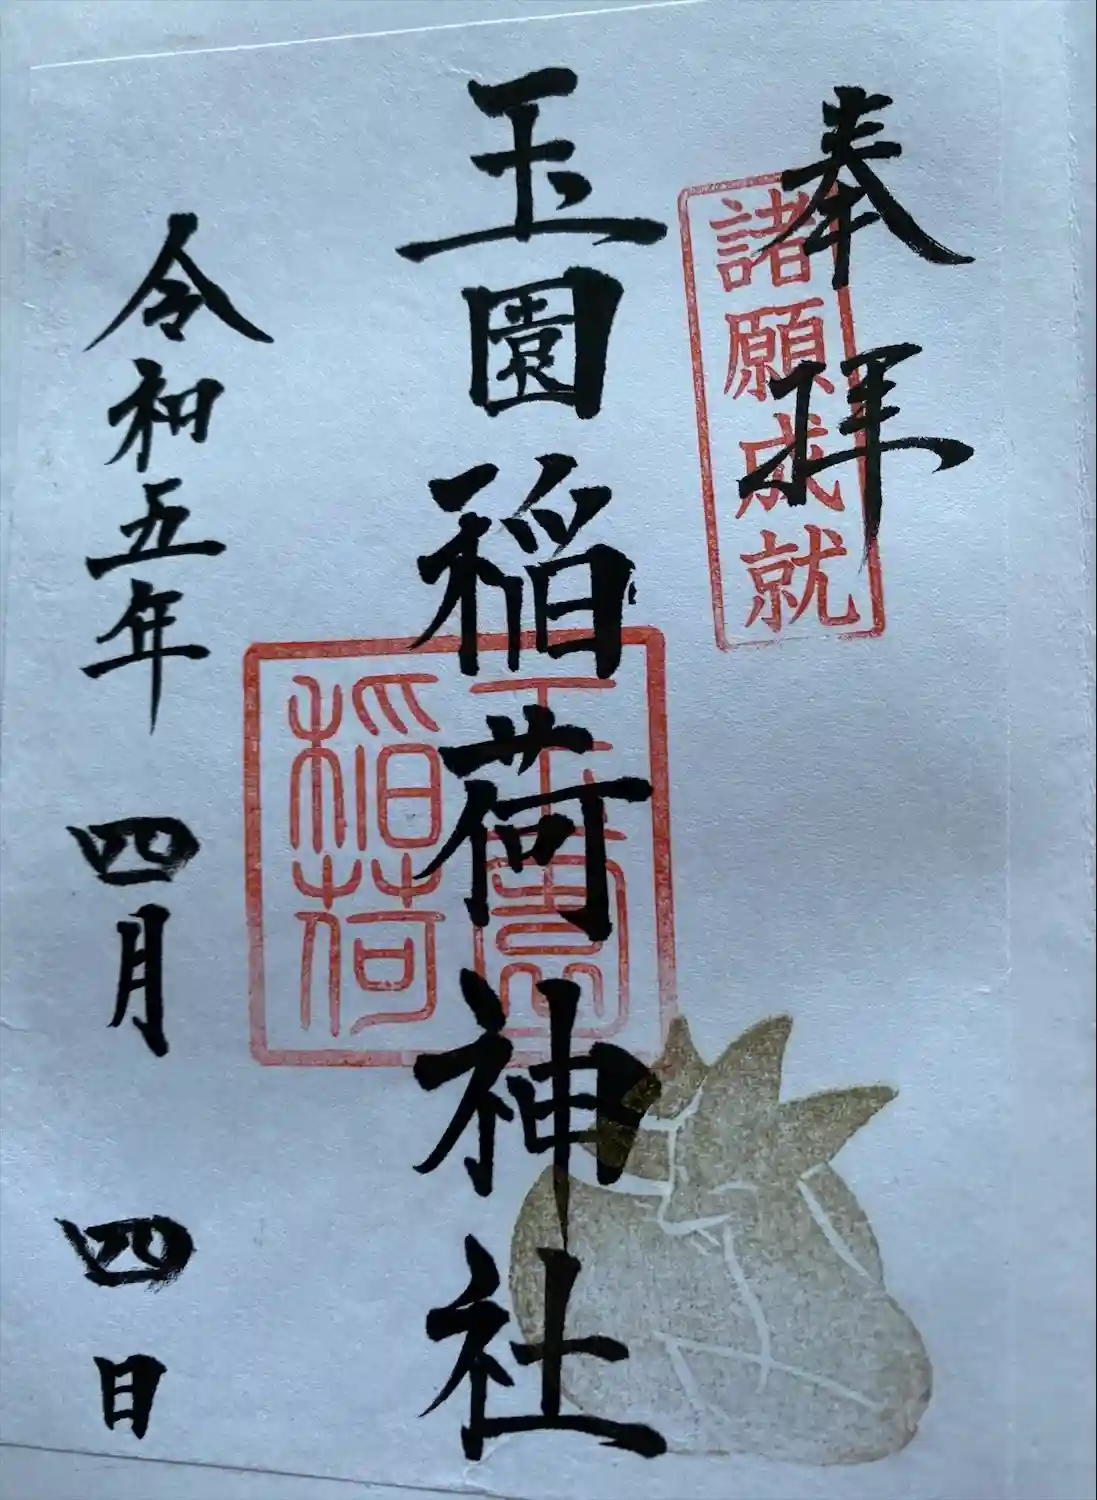 奉拝
諸願成就
玉園稲荷神社
玉園
稲荷
令和五年 四月 四日